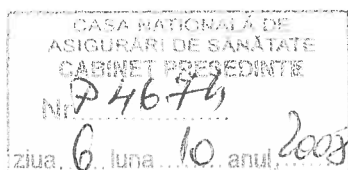 CASA NAŢIONALĂ DE
ASIGURĂRI DE SĂNĂTATE
CABINET PREŞEDINTE
Nr. P4674
ziua 6 luna 10 anul 2008